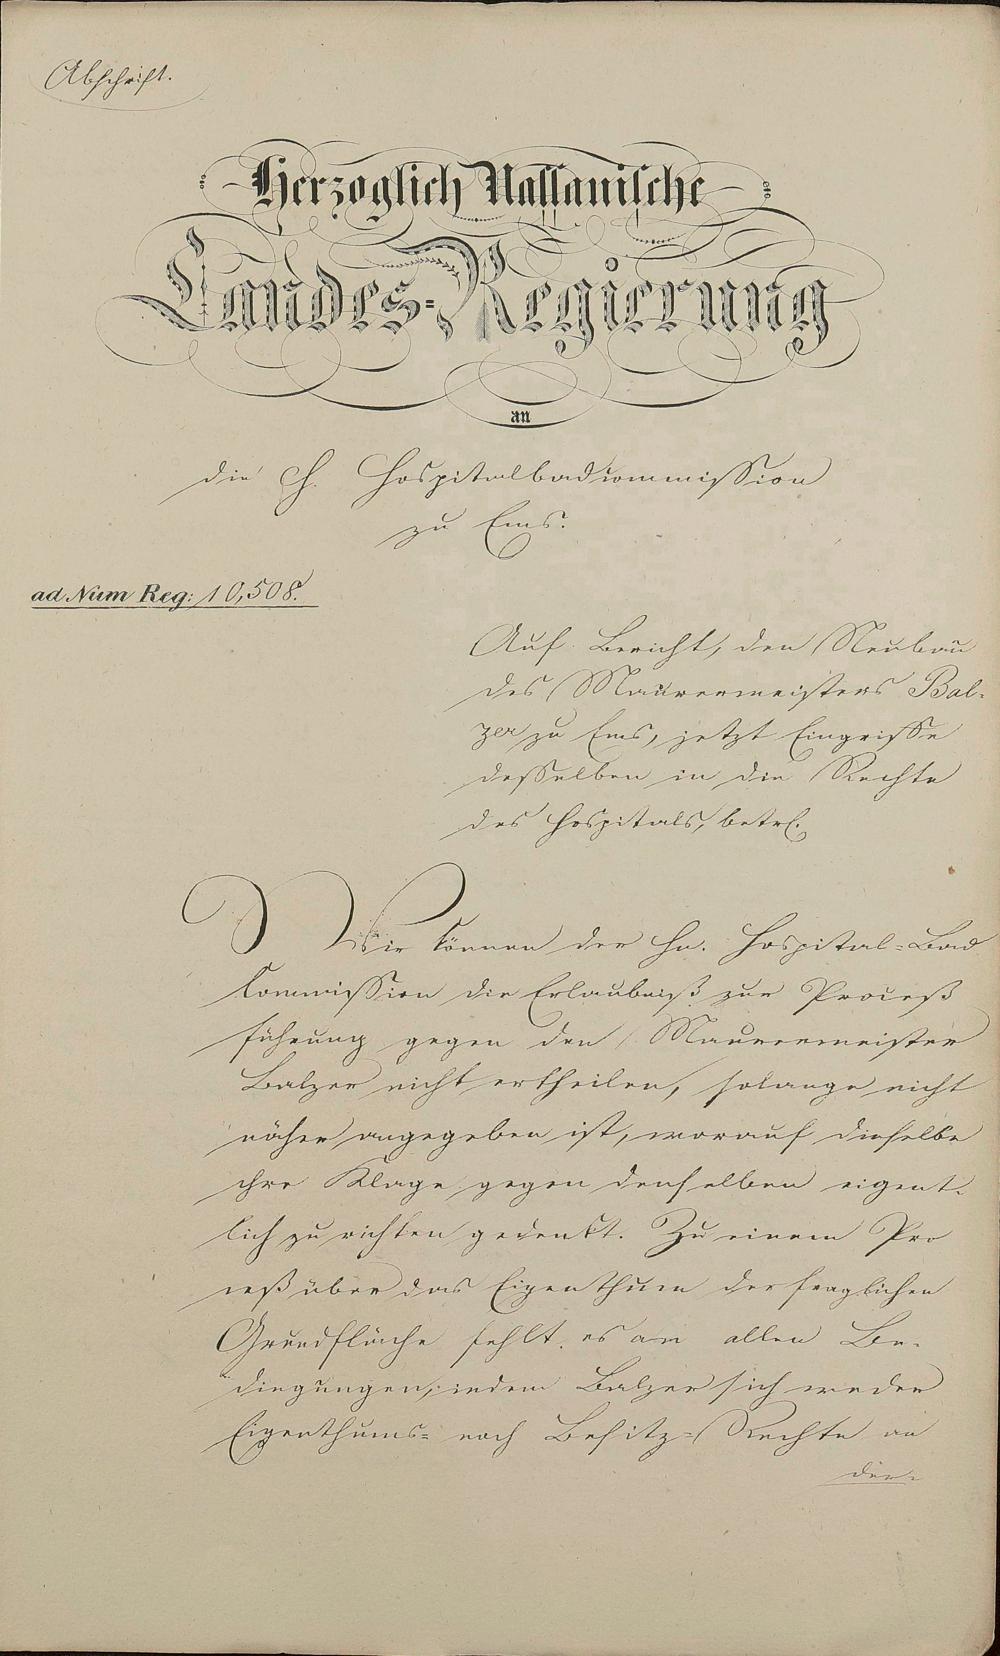 Abschrift.
Herzoglich Nassauische
Landes-Regierung
an
die H. Hospitalbadcommission
zu Ems.
ad Num Reg: 10,508.
Auf Bericht, den Neubau
des Maurermeisters Bal-
zer zu Ems, jetzt Eingriffe
desselben in die Rechte
des Hospitals, betrf.
Wir können der Hn. Hospital-Bad
Commission die Erlaubniß zur Proceß
führung gegen den Maurermeister
Balzer nicht ertheilen, solange nicht
näher angegeben ist, worauf dieselbe
ihre Klage gegen denselben eigent-
lich zu richten gedenkt. Zu einem Pro
ceß über das Eigenthum der fraglichen
Grundfläche fehlt es an allen Be-
dingungen, indem Balzer sich weder
Eigenthums- noch Besitz-Rechte an
der-